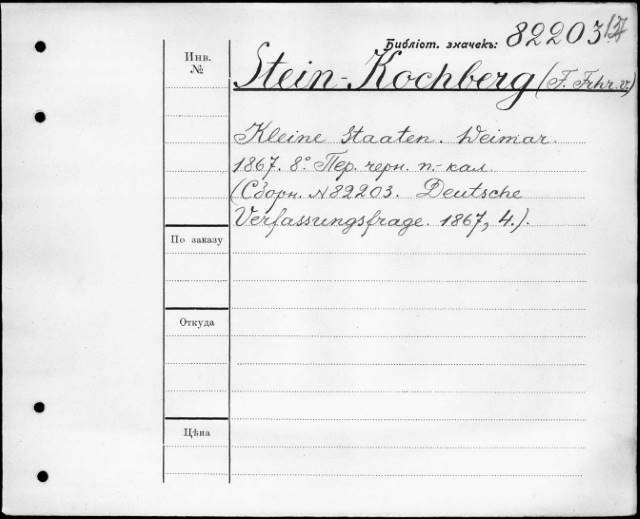 Библіот. значекъ: 82203
Инв.
№
Stein-Kochberg (F. Frhr. v.)
Kleine Staaten. Weimar.
1867. 8° Пер. черн. п.-кал.
(Сборн. №82203. Deutsche
Verfassungsfrage. 1867, 4.).
По заказу
Откуда
Цѣна